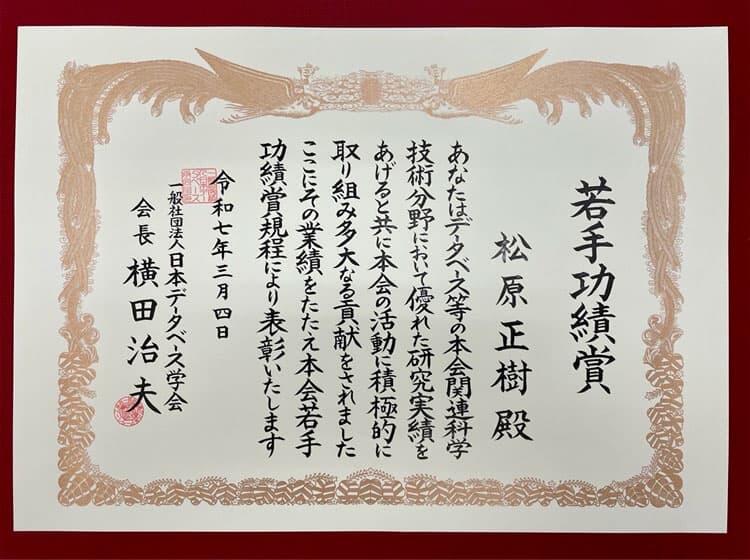 若手功績賞
松原正樹殿
あなたはデータベース等の本会関連科学
技術分野において優れた研究実績を
あげると共に本会の活動に積極的に
取り組み多大なる貢献をされました
ここにその業績をたたえ本会若手
功績賞規程により表彰いたします
令和七年三月四日
一般社団法人日本データベース学会
会長 横田治夫